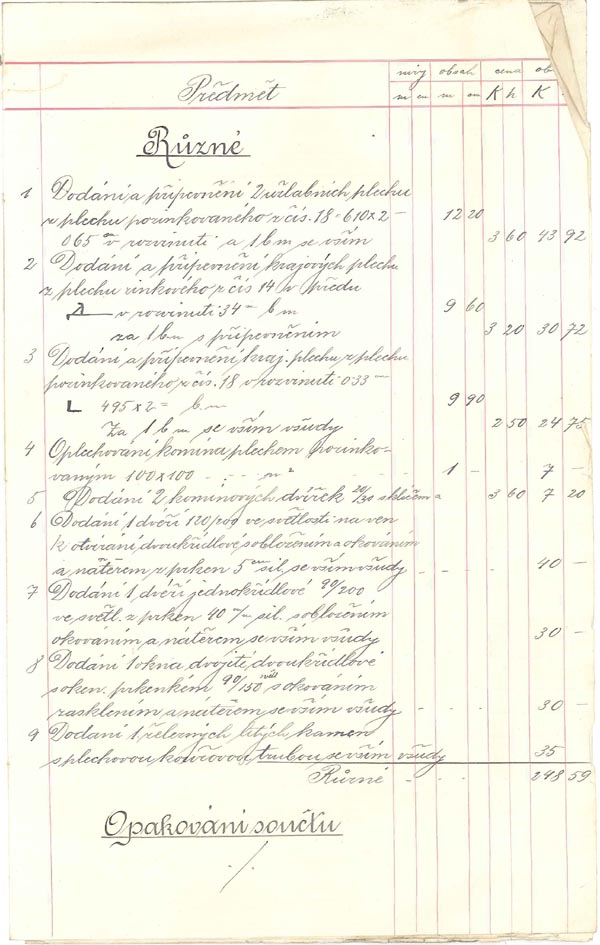 Předmět míry obsah cena ob
m cm m cm K h K
Různé
1 Dodání a připevnění 2 úžlabních plechu
z plechu pozinkovaného z čís. 18 - 610 x 2 - 12 20
065 m v rozvinutí a 1 b m se vším 3 60 43 92
2 Dodání a připevnění krajových plechu
z plechu zinkového z čís 14 v předu
v rozvinutí 34 b m 9 60
za 1 b m s připevněním 3 20 30 72
3 Dodání a připevnění kraj. plechu z plechu
pozinkovaného z čís. 18 v rozvinutí 033
495 x 2 = b m 9 90
Za 1 b m se vším všudy 2 50 24 75
4 Oplechování komína plechem pozinko-
vaným 100 x 100 m² 1 - 7 -
5 Dodání 2 komínových dvířek 20/30 s klíčem a 3 60 7 20
6 Dodání 1 dvéří 120/200 ve světlosti na ven
k otvírání, dvoukřídlové s obložením a okováním
a nátěrem z prken 5 cm sil, se vším všudy 40 -
7 Dodání 1 dvéří jednokřídlové 90/200
ve světl. z prken 40 m/m sil. s obložením
okováním a nátěrem, se vším všudy 30 -
8 Dodání 1 okna dvojité, dvoukřídlové
s oken. prkenkém 90/150 svět s okováním
zasklením, a nátěrem, se vším všudy 30 -
9 Dodání 1 železných litých kamen
s plechovou kouřovou troubou, se vším všudy 35
Různé 248 59
Opakování součtu
./.